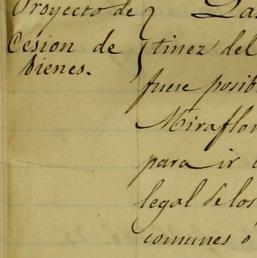 Proyecto de
Cesion de
bienes.
tinez del
fuese posib
Miraflor
para ir
legal de los
comunes ó